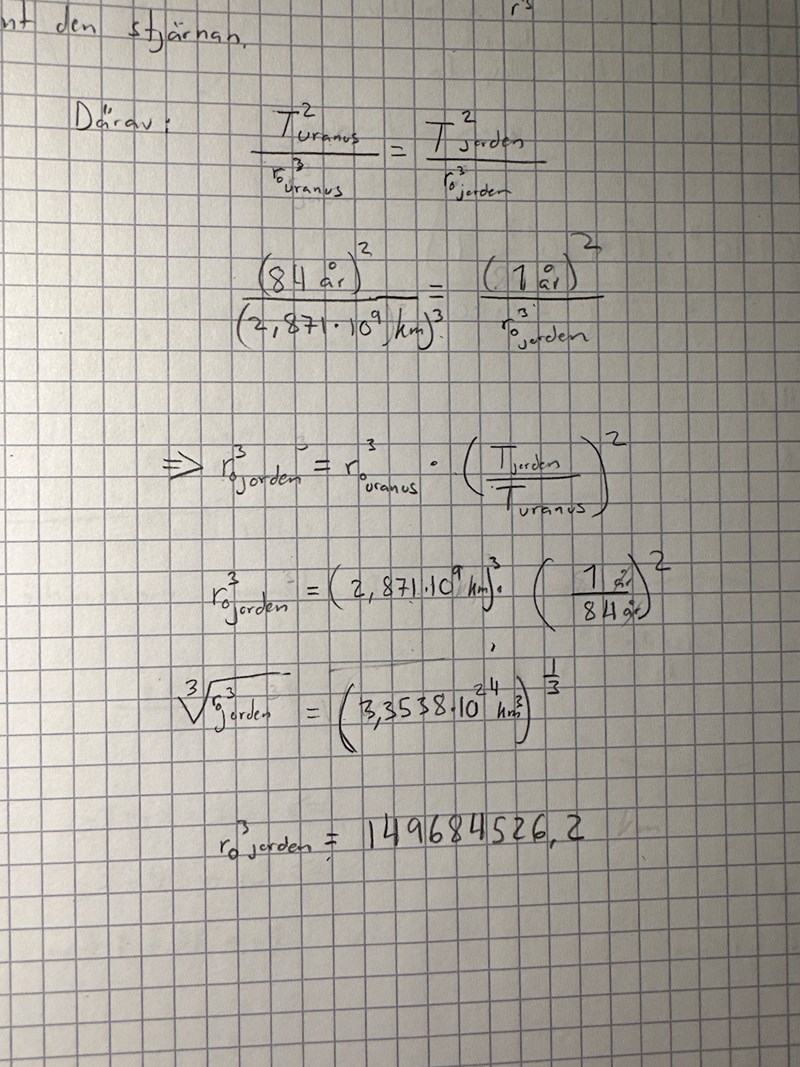 r³
nt den stjärnan.
Därav: T²uranus / r₀³uranus = T²jorden / r₀³jorden
(84 år)² / (2,871·10⁹ km)³ = (1 år)² / r₀³jorden
⇒ r₀³jorden = r₀³uranus · (Tjorden / Turanus)²
r₀³jorden = (2,871·10⁹ km)³ · (1 år / 84 år)²
∛r₀³jorden = (3,3538·10²⁴ km³)^(1/3)
r₀³jorden = 149684526,2